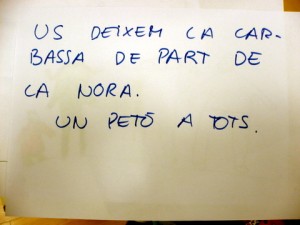 US DEIXEM LA CAR-
BASSA DE PART DE
LA NORA.
UN PETÓ A TOTS.